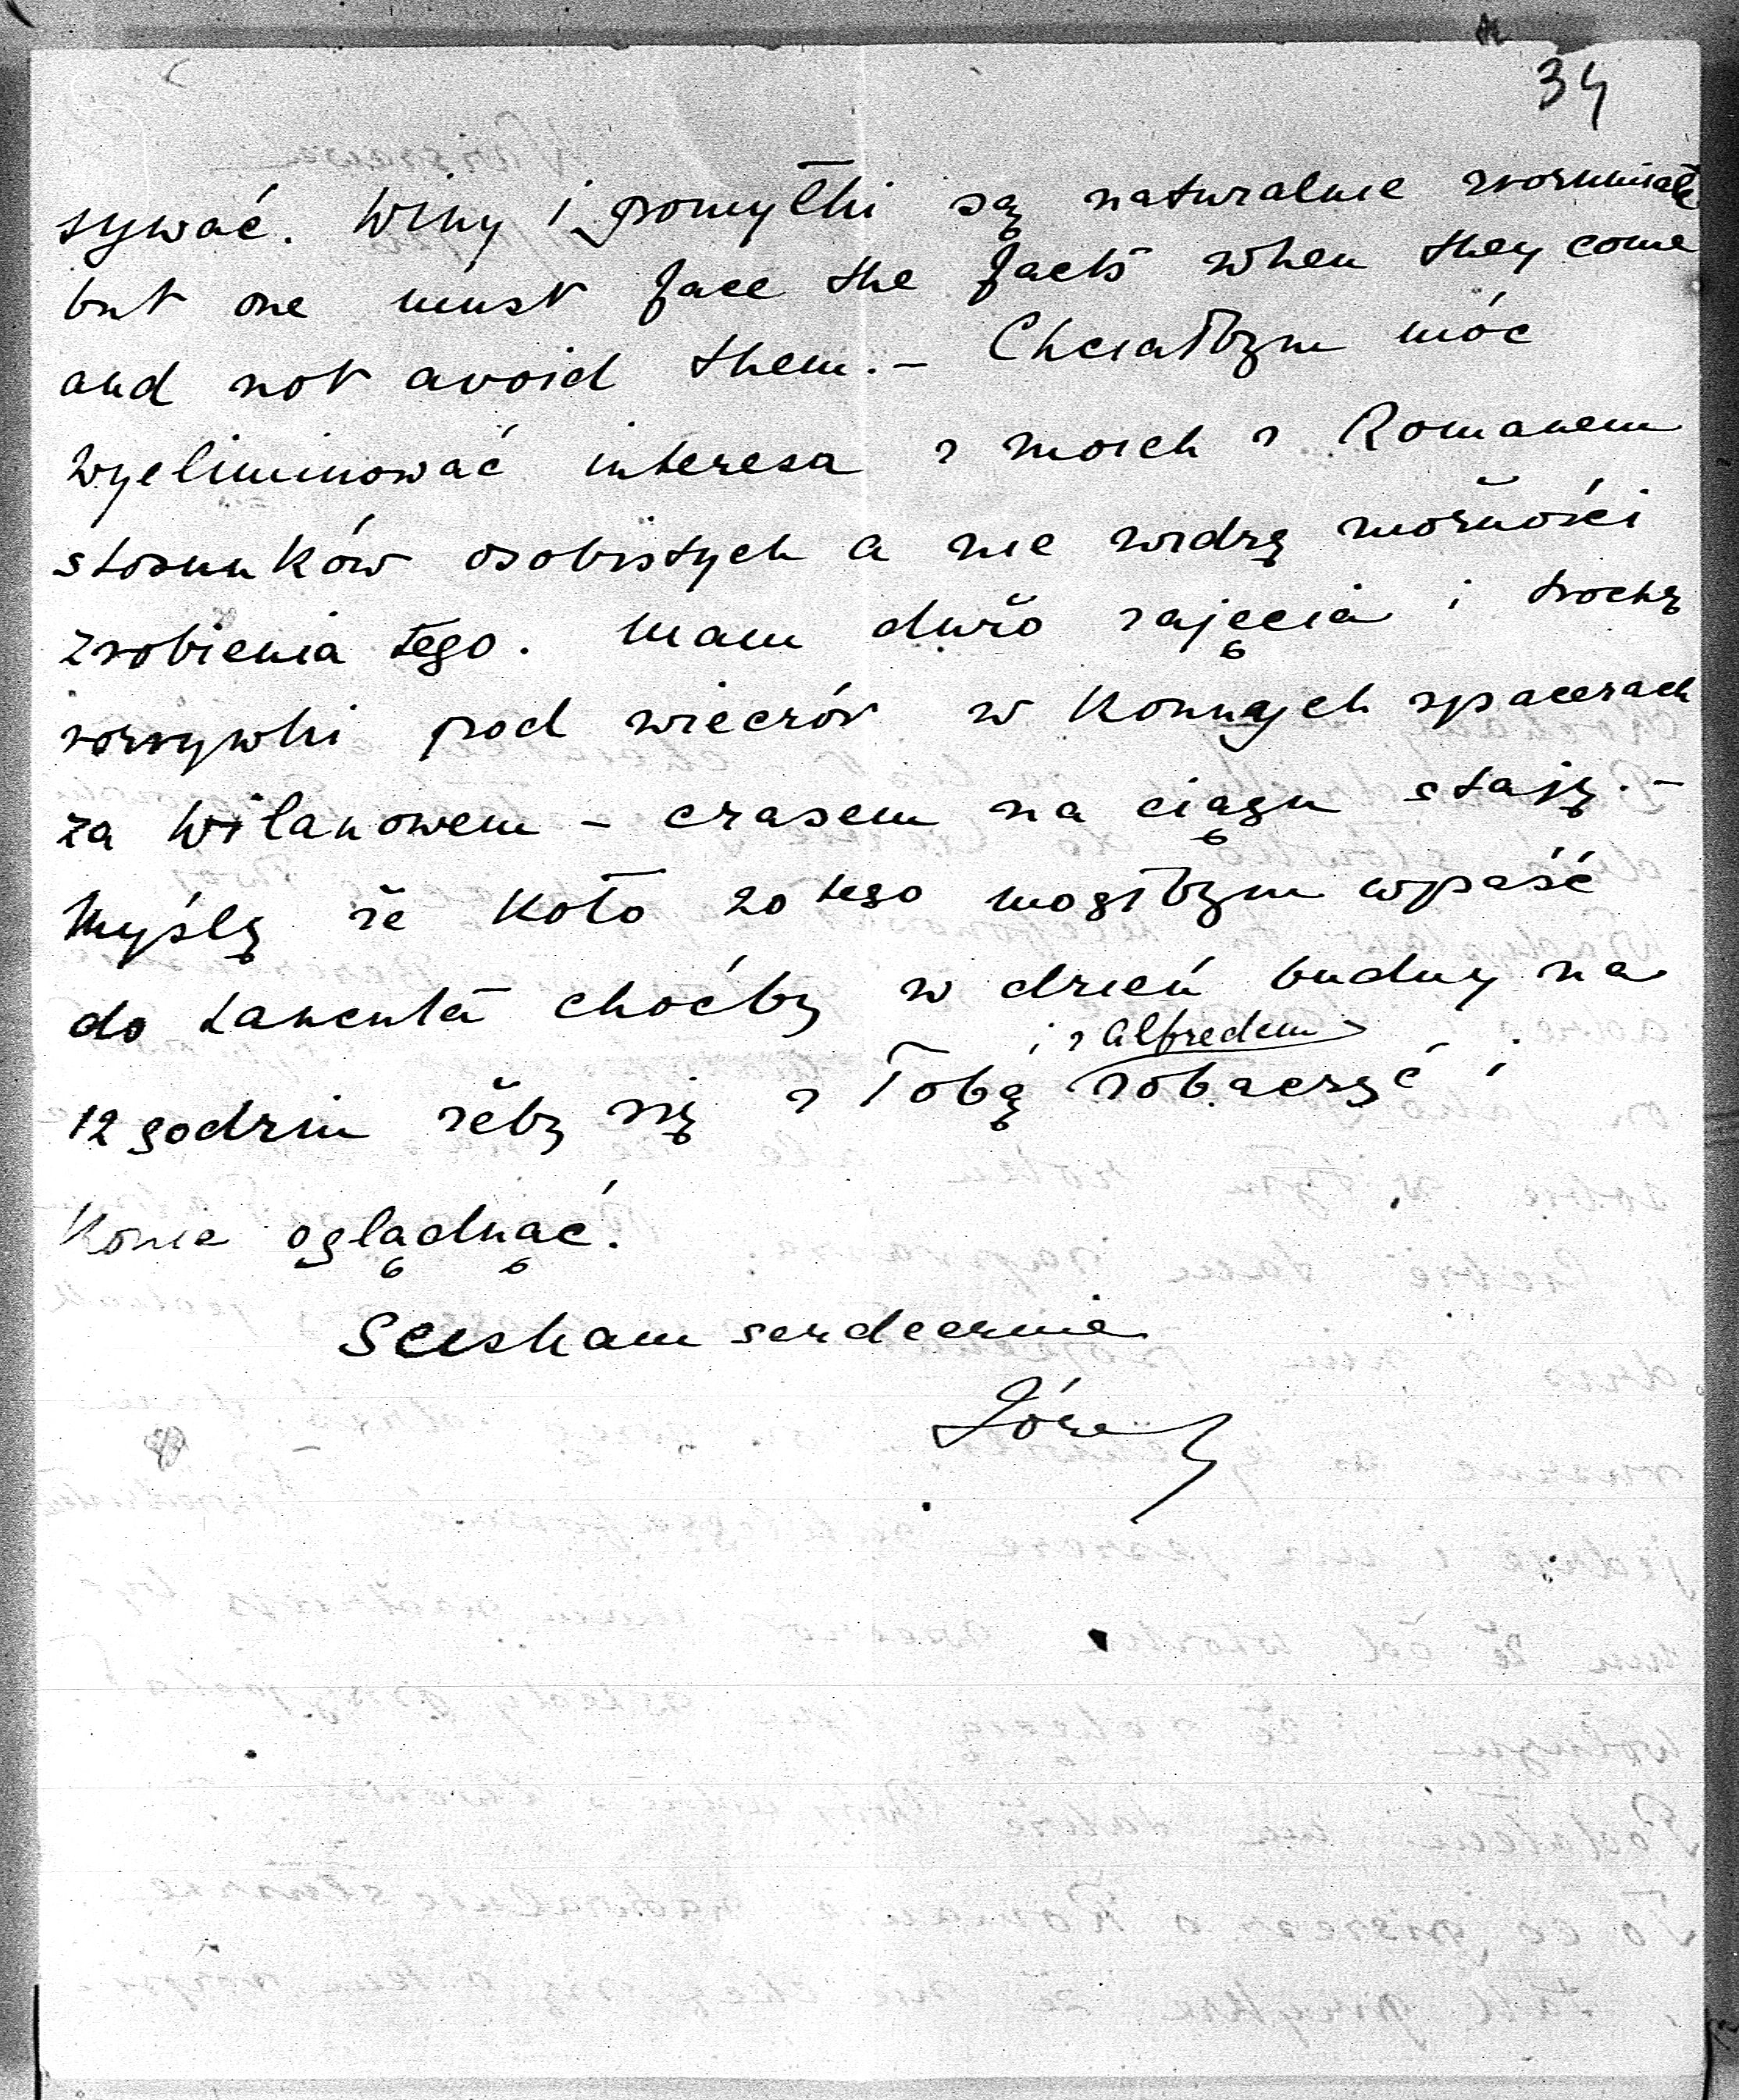 34
sywać. Winy i pomyłki są naturalnie zrozumiałe
but one must face the facts when they come
and not avoid them. – Chciałbym móc
wyeliminować interesa z moich z Romanem
stosunków osobistych a nie widzę możności
zrobienia tego. Mam dużo zajęcia i trochę
rozrywki pod wieczór w konnych spacerach
za Wilanowem – czasem na ciągu staję. –
Myślę że koło 20tego mógłbym wpaść
do Łańcuta choćby w dzień budny na
i z Alfredem
12 godzin żeby się z Tobą zobaczyć i
konie oglądnąć.
Sciskam serdecznie
Józef